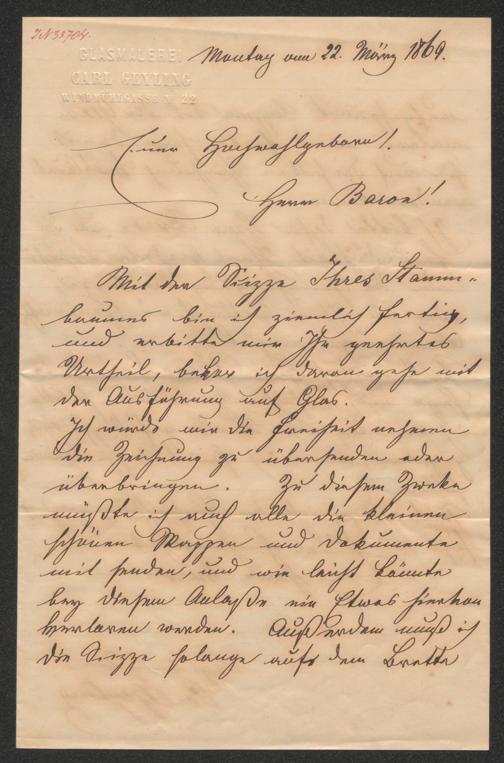 JN 33704.
GLASMALEREI
CARL GEYLING
WINDMÜHLGASSE Nº 22
Montag am 22. März 1869.
Euer Hochwohlgeborn!
Herr Baron!
Mit der Skizze Ihres Stamm-
baumes bin ich ziemlich fertig,
und erbitte mir Ihr geehrtes
Urtheil, bevor ich daran gehe mit
der Ausführung auf Glas.
Ich würde mir die Freiheit nehmen
die Zeichnung zu übersenden oder
überbringen. Zu diesem Zweke
müßte ich auch alle die kleinen
schönen Wappen und Dokumente
mit senden, und wie leicht könnte
bey diesem Anlaße ein Etwas hievon
verloren werden. Außerdem muß ich
die Skizze solange aufs dem Brette